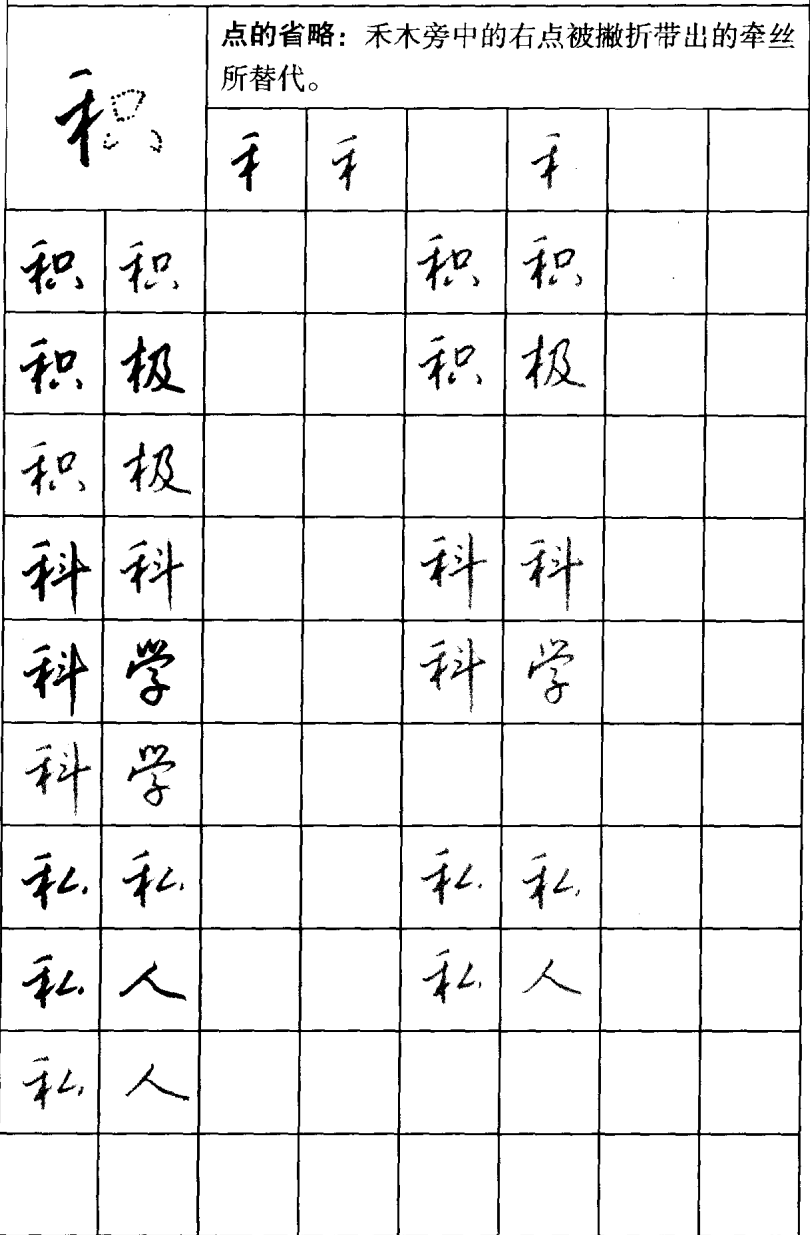 点的省略：禾木旁中的右点被撇折带出的牵丝
所替代。
积
禾 禾 禾
积 积 积 积
积 极 积 极
积 极
科 科 科 科
科 学 科 学
科 学
私 私 私 私
私 人 私 人
私 人